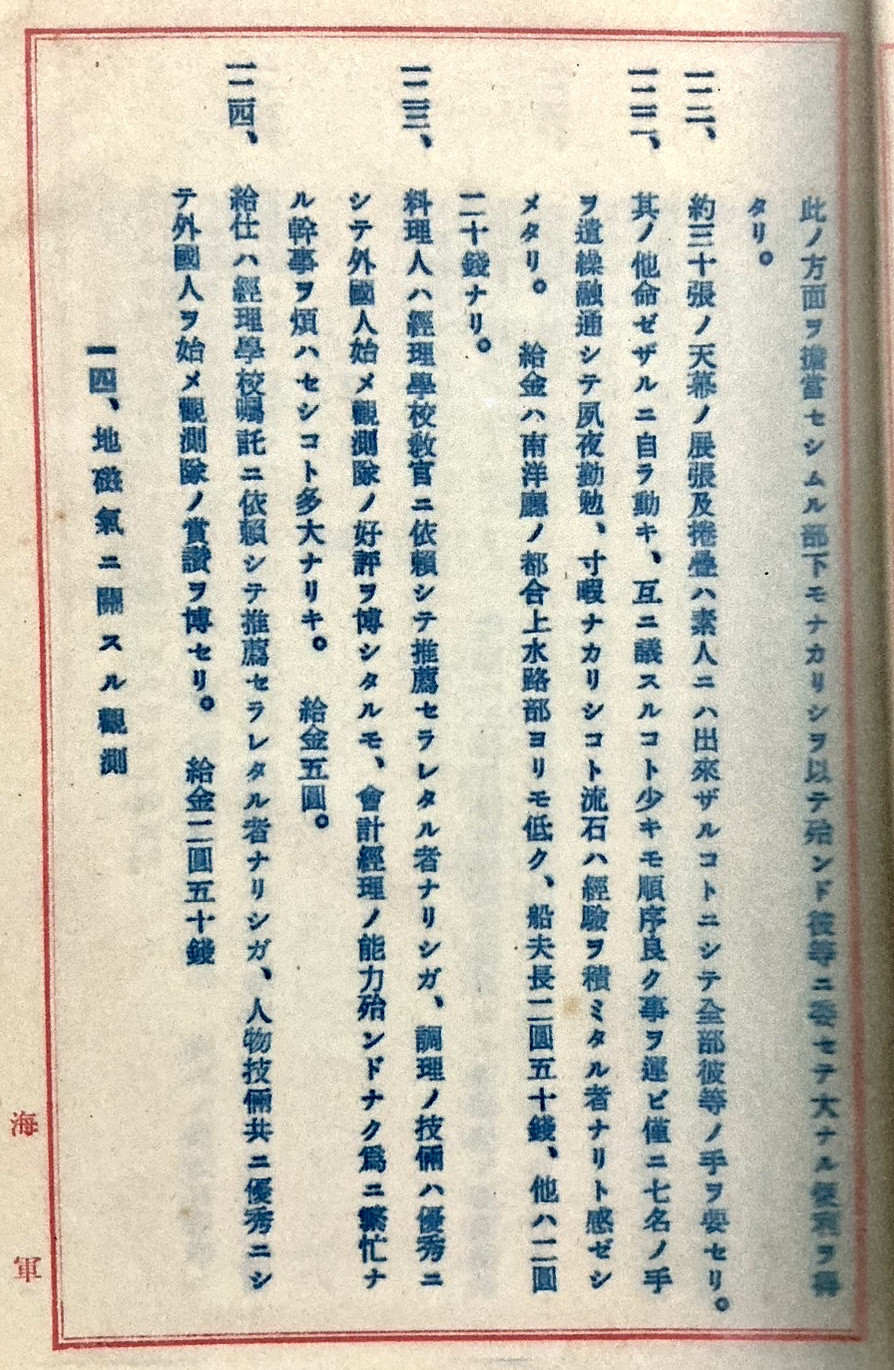 此ノ方面ヲ擔當セシムル部下モナカリシヲ以テ殆ンド彼等ニ委セテ大ナル便利ヲ得
タリ。
一二一、約三十張ノ天幕ノ展張及捲疊ハ素人ニハ出來ザルコトニシテ全部彼等ノ手ヲ要セリ。
一二二、其ノ他命ゼザルニ自ラ動キ、互ニ議スルコト少キモ順序良ク事ヲ運ビ僅ニ七名ノ手
ヲ遣繰融通シテ夙夜勤勉、寸暇ナカリシコト流石ハ經驗ヲ積ミタル者ナリト感ゼシ
メタリ。 給金ハ南洋廳ノ都合上水路部ヨリモ低ク、船夫長二圓五十錢、他ハ二圓
二十錢ナリ。
一二三、料理人ハ經理學校敎官ニ依賴シテ推薦セラレタル者ナリシガ、調理ノ技倆ハ優秀ニ
シテ外國人始メ觀測隊ノ好評ヲ博シタルモ、會計經理ノ能力殆ンドナク爲ニ繁忙ナ
ル幹事ヲ煩ハセシコト多大ナリキ。 給金五圓。
一二四、給仕ハ經理學校囑託ニ依賴シテ推薦セラレタル者ナリシガ、人物技倆共ニ優秀ニシ
テ外國人ヲ始メ觀測隊ノ賞讚ヲ博セリ。 給金二圓五十錢
一四、地磁氣ニ關スル觀測
海軍